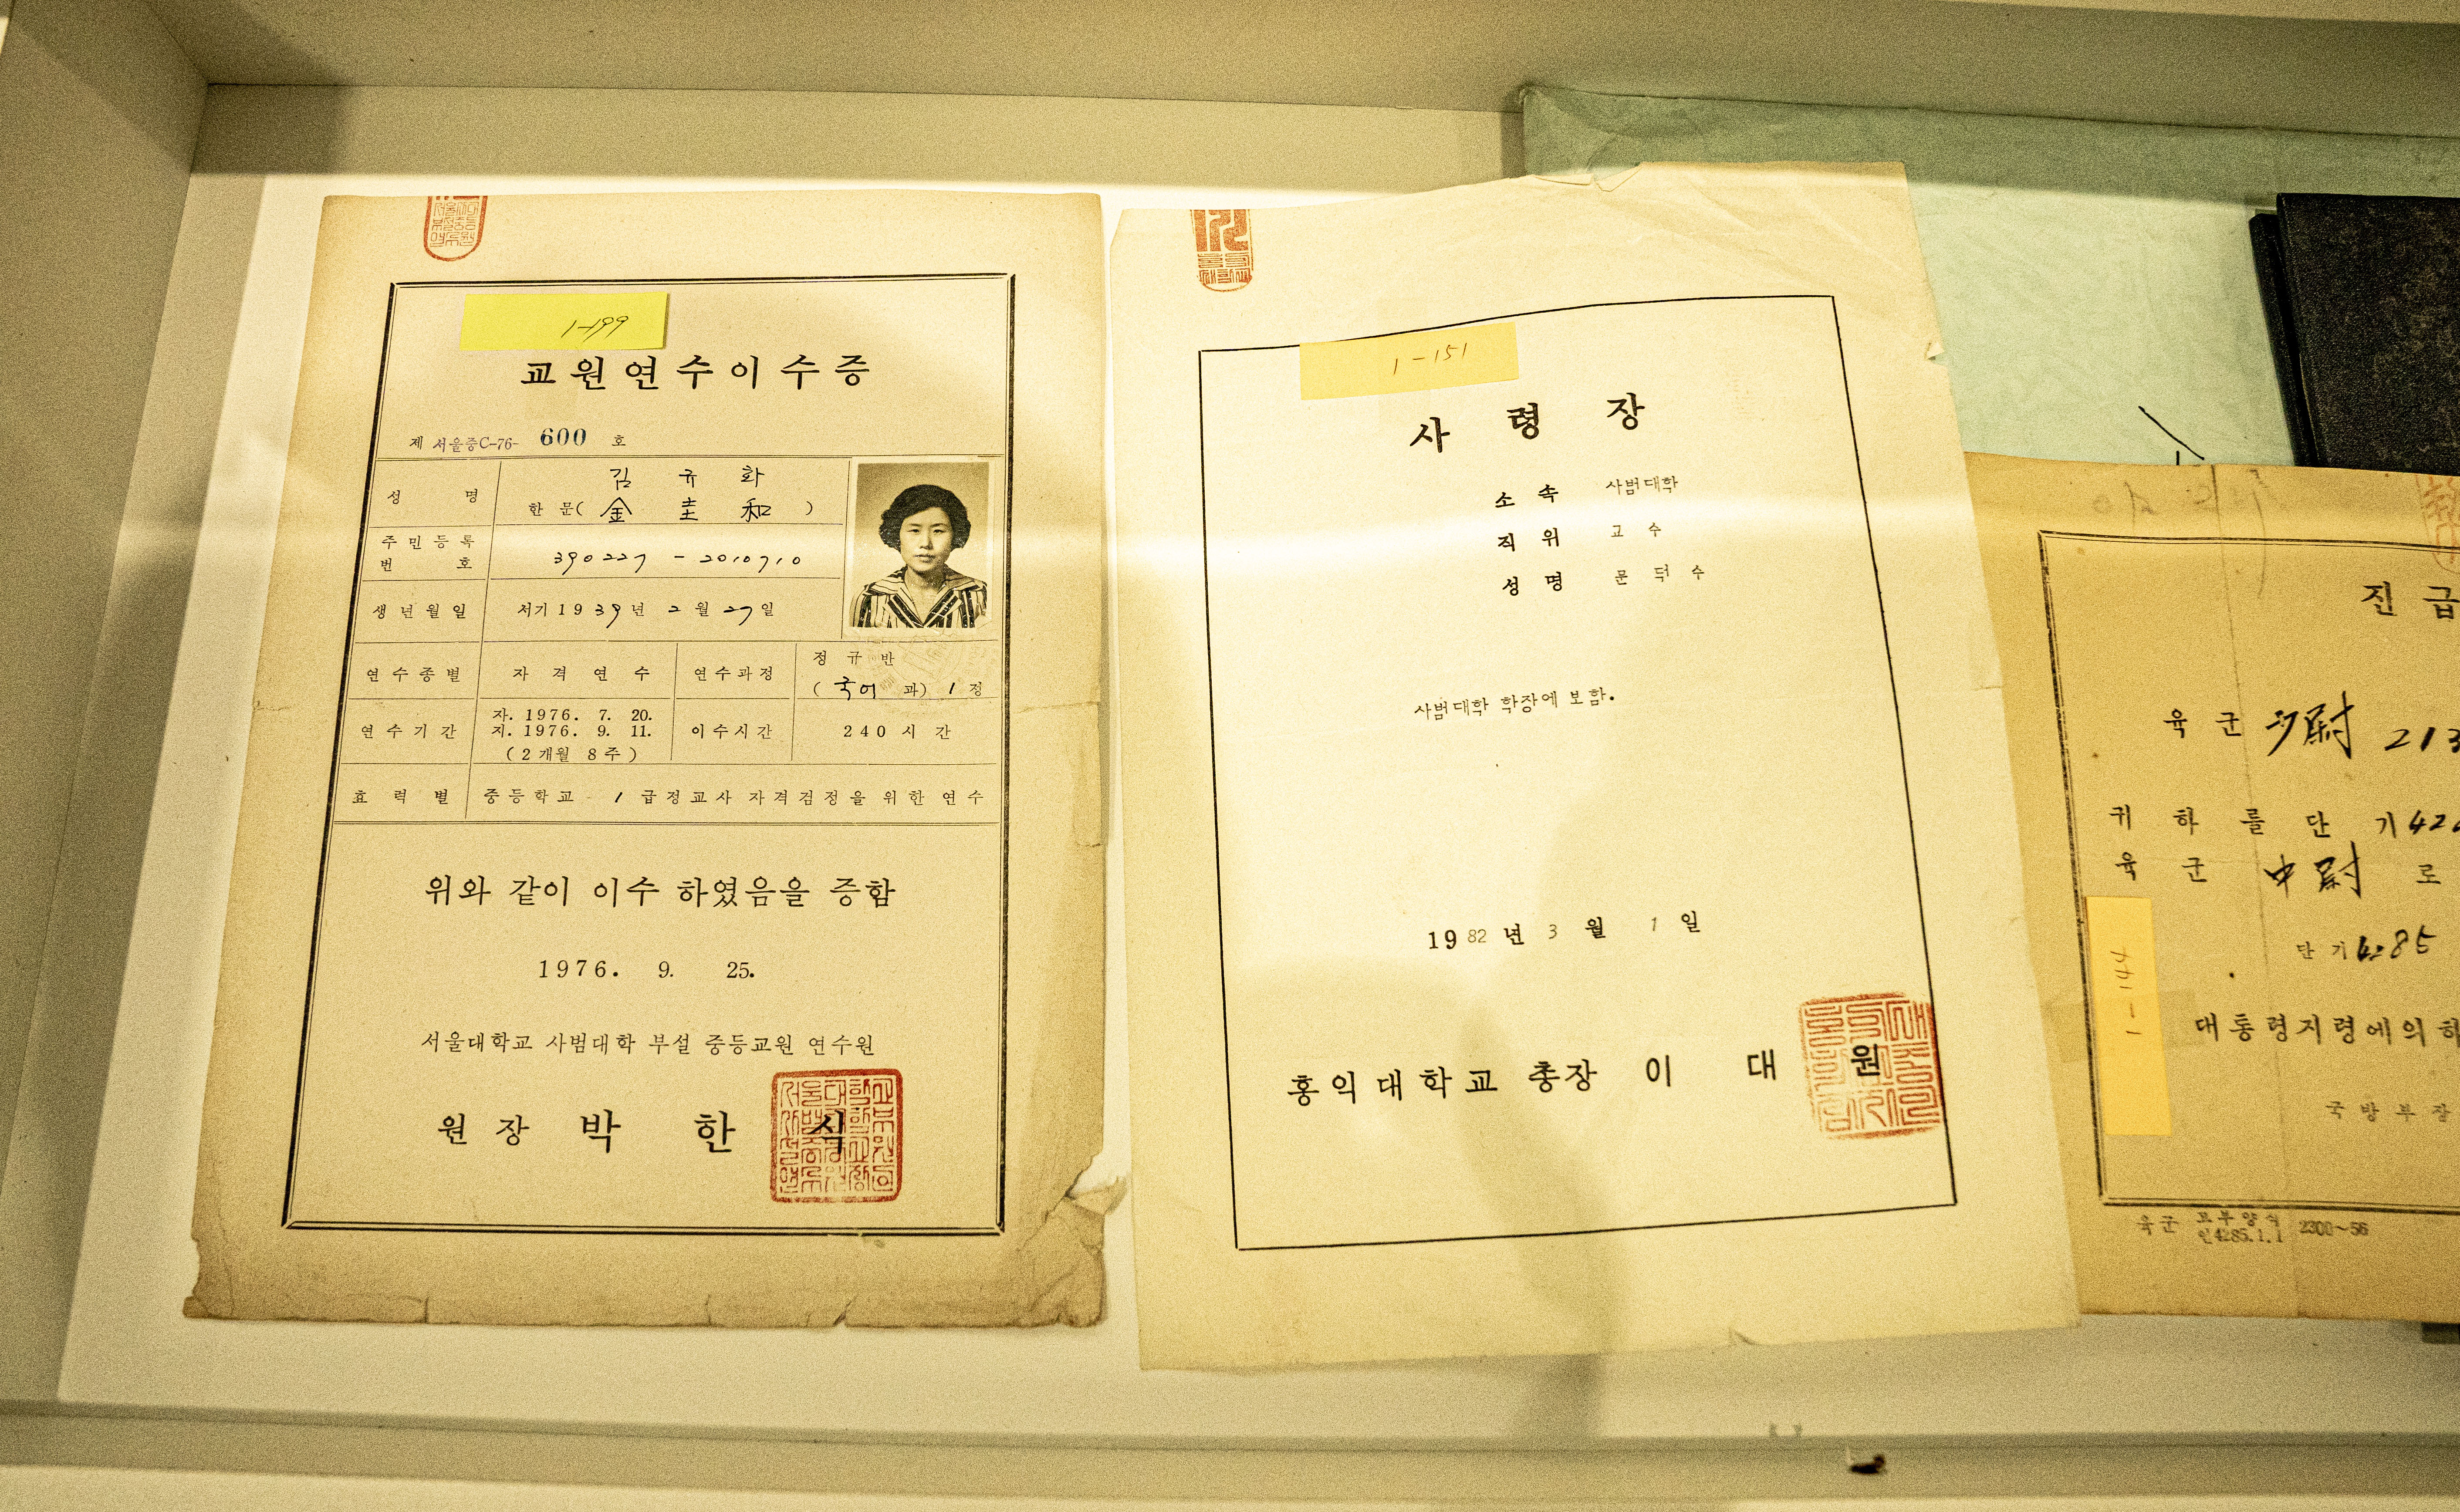 1-199
교원연수이수증
제 서울중C-76- 600 호
성 명 김 규 화
한 문( 金 圭 和 )
주민등록
번 호 390227 - 2010710
생년월일 서기 1939년 2월 27일
연수종별 자 격 연 수 연수과정 정 규 반
( 국어 과) 1 정
연수기간 자. 1976. 7. 20.
지. 1976. 9. 11.
( 2 개월 8 주 )
이수시간 240 시 간
효 력 별 중등학교 1 급정교사 자격검정을 위한 연수
위와 같이 이수 하였음을 증함
1976. 9. 25.
서울대학교 사범대학 부설 중등교원 연수원
원 장 박 한 식
1-151
사 령 장
소 속 사범대학
직 위 교 수
성 명 문 덕 수
사범대학 학장에 보함.
1982 년 3 월 1 일
홍익대학교 총장 이 대 원
진 급
육 군 少尉 213
귀 하 를 단 기 42
육 군 中尉 로
단 기 4285
대통령지령에의하
국 방 부 장
육군
인4285.1.1 2300~56